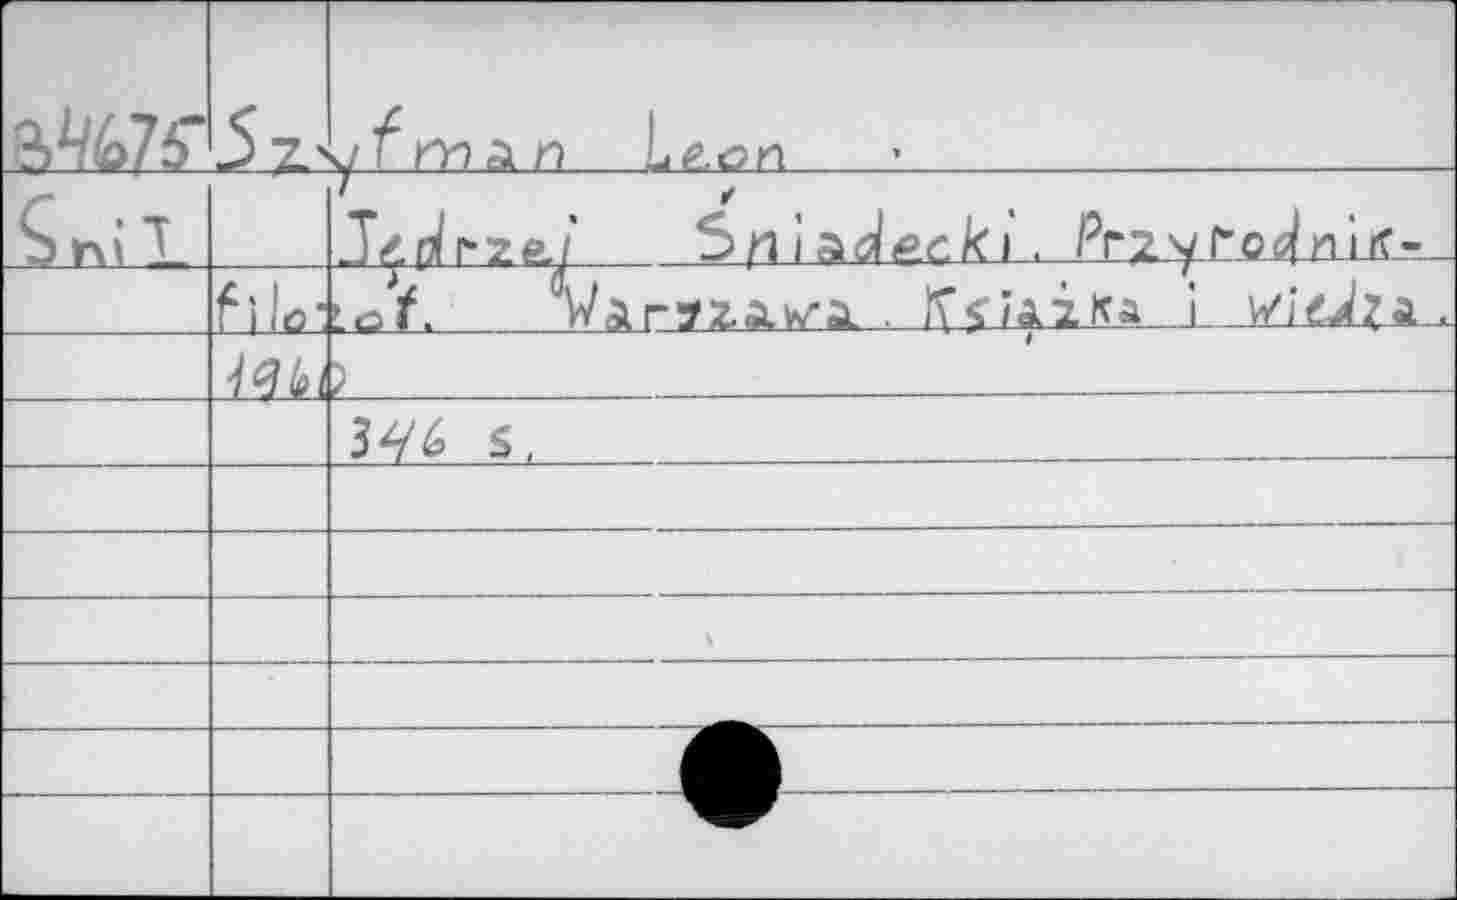 B4675 Szyfman Leon
SniI Jędrzej Śniadecki. Przyrodnik-
filozof. Warszawa. Książka i Wiedza.
1960
346 s.